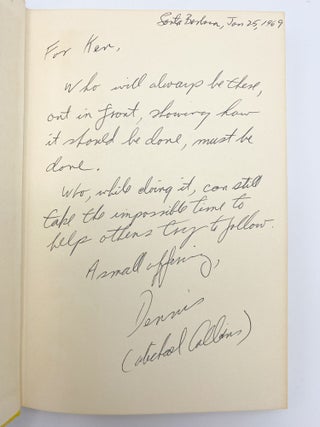 Santa Barbara, Jan 25, 1969
For Ken,
Who will always be there,
out in front, showing how
it should be done, must be
done.
Who, while doing it, can still
take the impossible time to
help others try to follow.
A small offering,
Dennis
(Michael Collins)